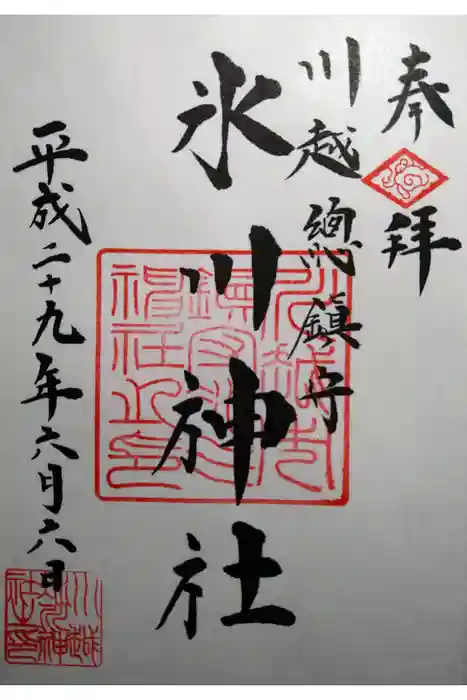 奉拝
川越總鎮守
氷川神社
平成二十九年六月六日